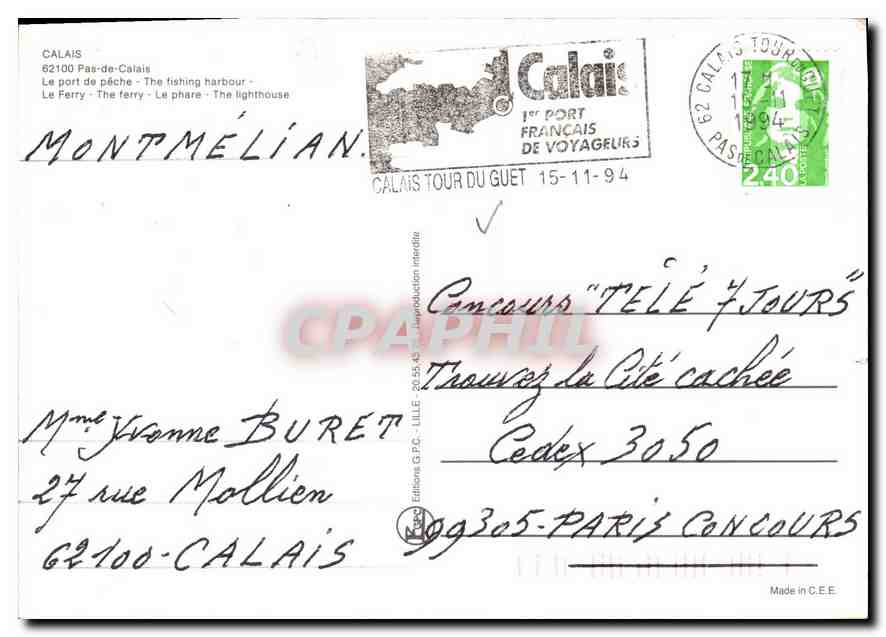 CALAIS
62100 Pas-de-Calais
Le port de pêche - The fishing harbour -
Le Ferry - The ferry - Le phare - The lighthouse
MONTMÉLIAN.
Calais
1er PORT
FRANÇAIS
DE VOYAGEURS
CALAIS TOUR DU GUET 15-11-94
62 CALAIS TOUR DU GUET
1994
PAS DE CALAIS
2,40
LA POSTE
Concours "TÉLÉ 7 JOURS"
Trouvez la Cité cachée
Cedex 3050
99305-PARIS CONCOURS
Mme Yvonne BURET
27 rue Mollien
62100-CALAIS
GPC Editions G.P.C. - LILLE - 20.55.43 Reproduction interdite
CPAPHIL
Made in C.E.E.